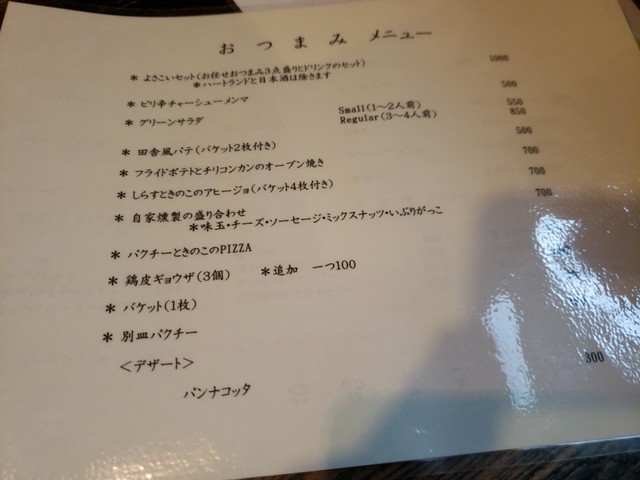 おつまみ メニュー
* よさこいセット(お任せおつまみ3点盛りとドリンクのセット) 1000
*ハートランドと日本酒は除きます
* ピリ辛チャーシューメンマ 500
* グリーンサラダ Small(1～2人前) 550
Regular(3～4人前) 850
* 田舎風パテ(バケット2枚付き) 500
* フライドポテトとチリコンカンのオーブン焼き 700
* しらすときのこのアヒージョ(バケット4枚付き) 700
* 自家燻製の盛り合わせ 700
*味玉・チーズ・ソーセージ・ミックスナッツ・いぶりがっこ
* パクチーときのこのPIZZA
* 鶏皮ギョウザ(3個) *追加 一つ100
* バケット(1枚)
* 別皿パクチー
<デザート>
パンナコッタ 300